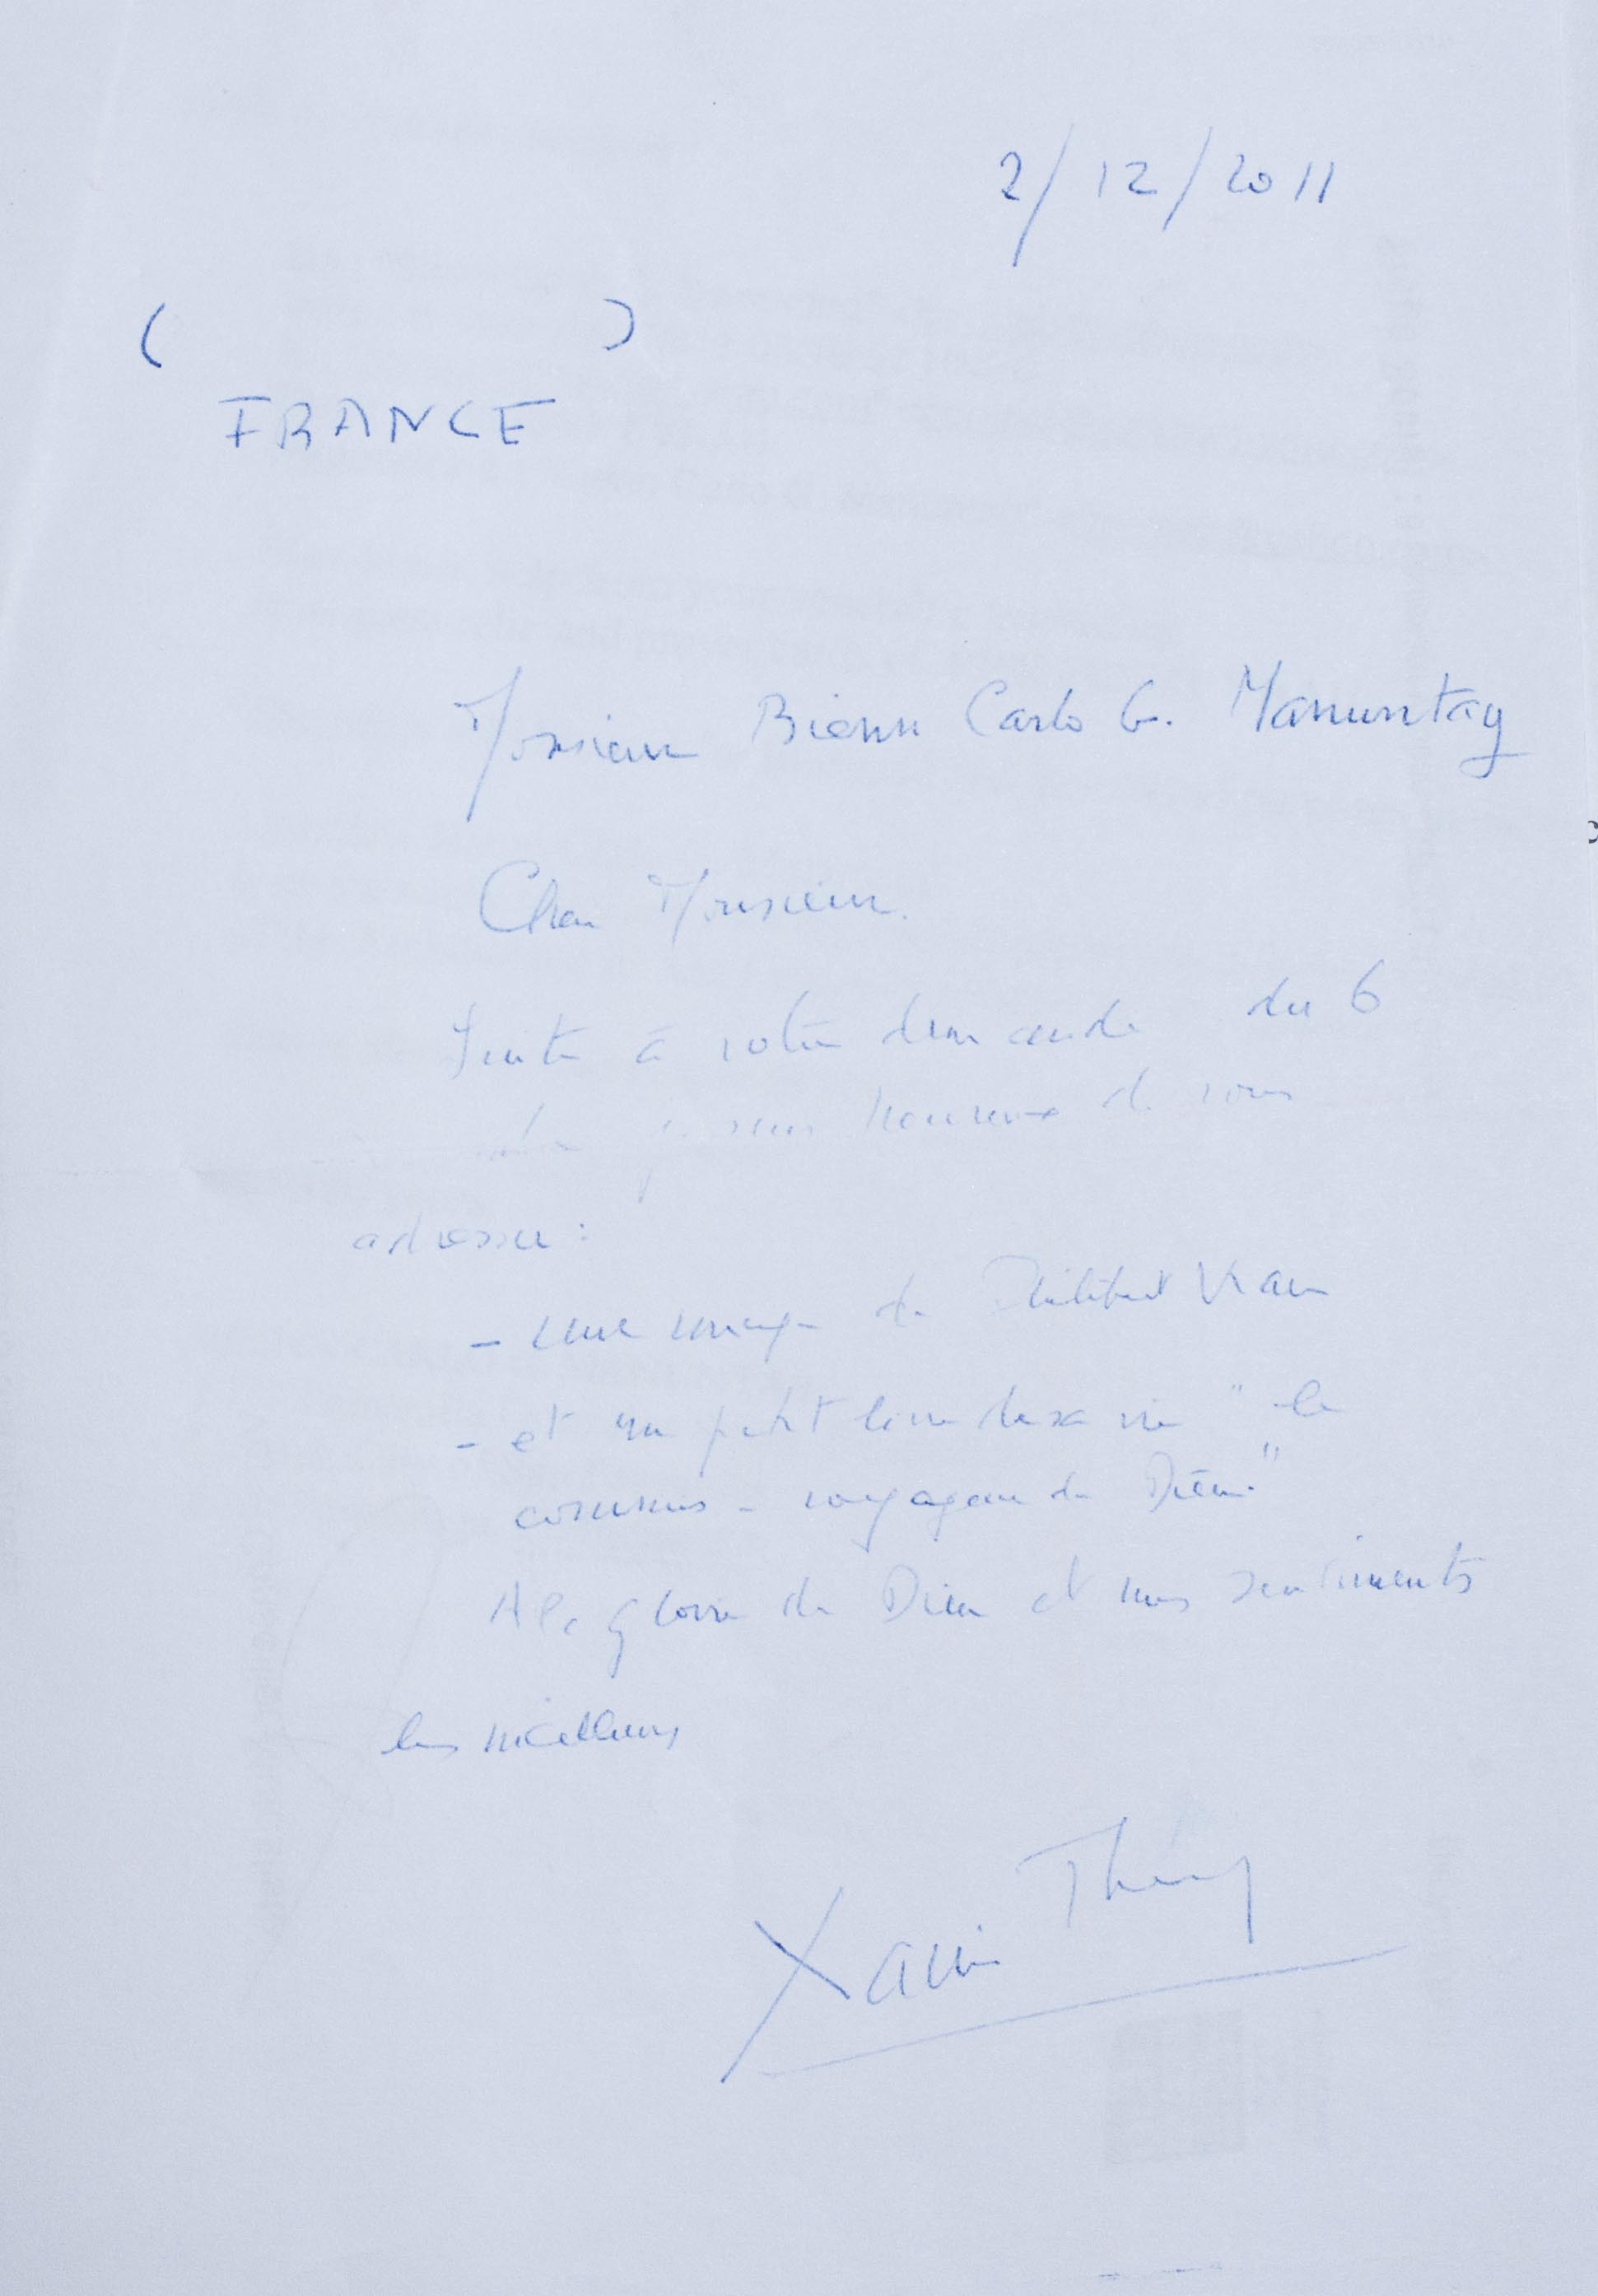 2/12/2011
( )
FRANCE
Monsieur Bienn Carlo G. Manuntag
Cher Monsieur.
Suite à votre demande du 6
je suis heureux de vous
adresser :
- une image de Philibert Vrau
- et un petit livre de sa vie " le
commis - voyageur de Dieu. "
A la gloire de Dieu et mes sentiments
les meilleurs
Xavier Théry